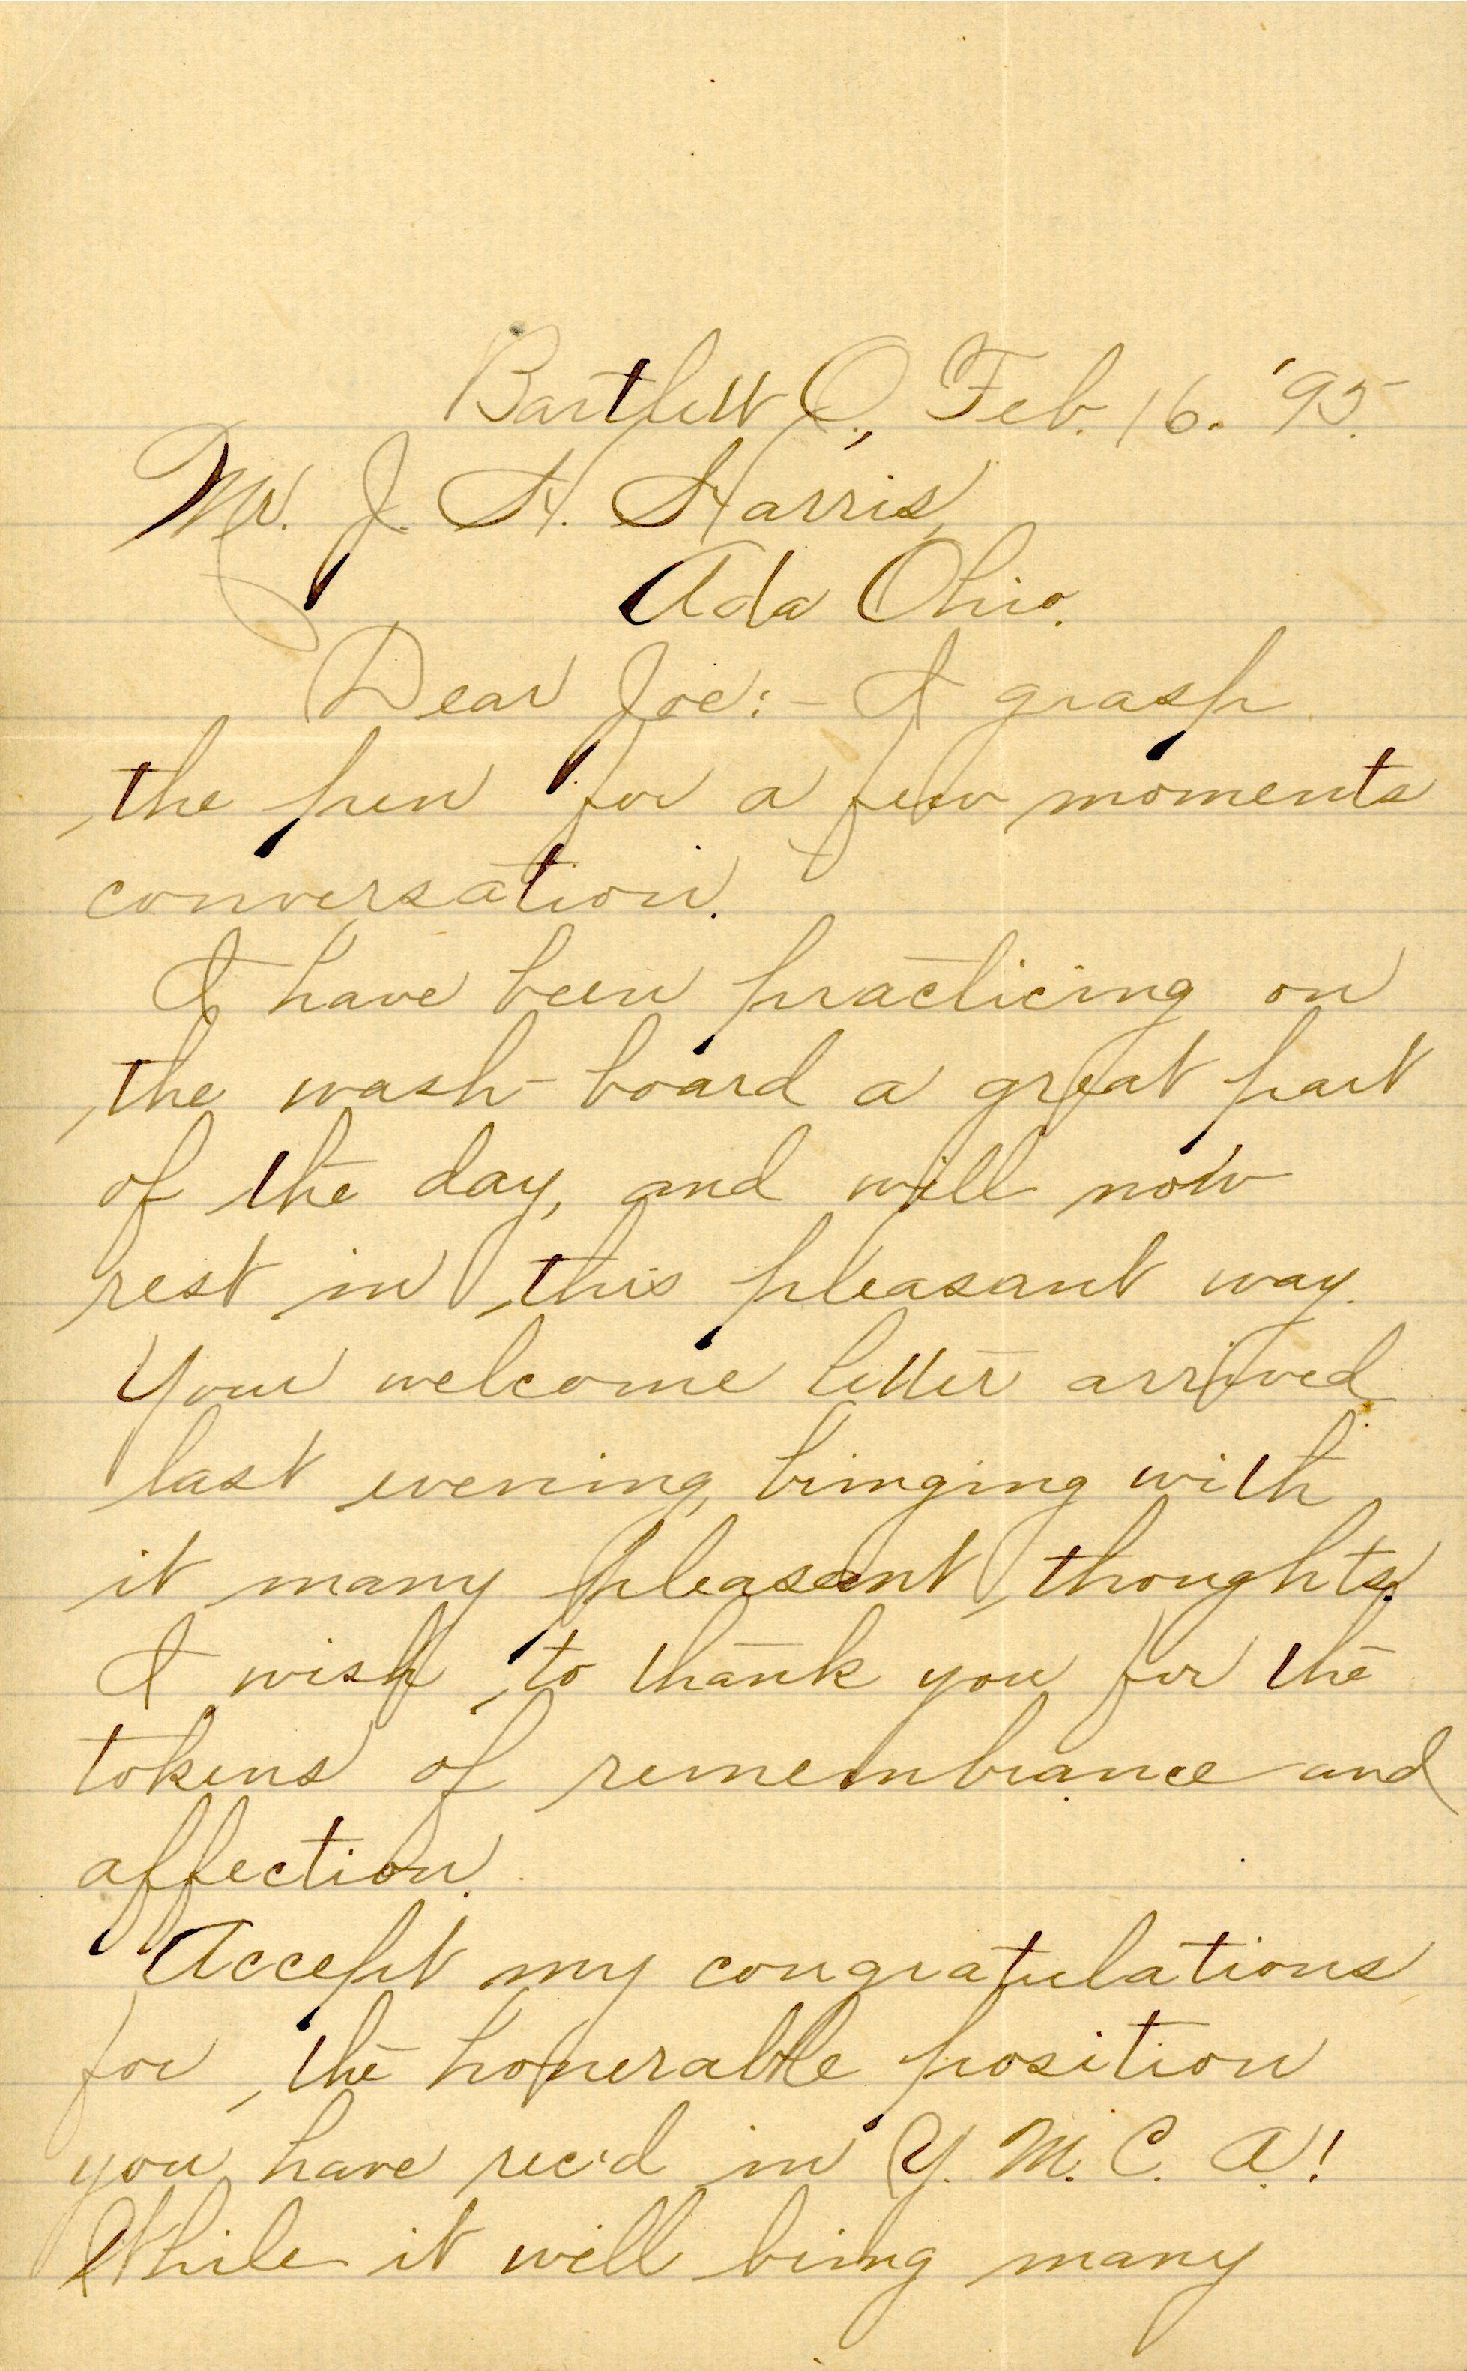 Bartlett O., Feb. 16. '95.
Mr. J. H. Harris,
Ada Ohio.
Dear Joe:- I grasp
the pen for a few moments
conversation.
I have been practicing on
the wash-board a great part
of the day, and will now
rest in this pleasant way.
Your welcome letter arrived
last evening, bringing with
it many pleasant thoughts.
I wish to thank you for the
tokens of remembrance and
affection.
Accept my congratulations
for the honerable position
you have rec'd in Y. M. C. A!
While it will bring many